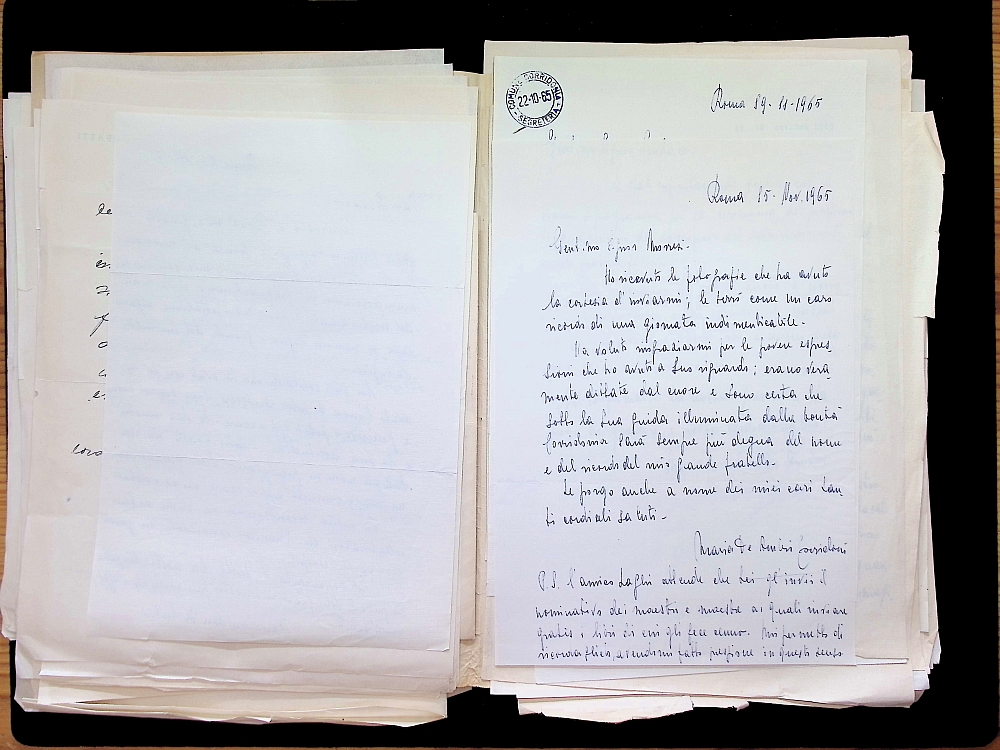 COMUNE CORRIDONIA
22-10-65
SEGRETERIA
Roma 19-11-1965
Roma 15-Nov. 1965
Ho ricevuto le fotografie che ha avuto
la cortesia d'inviarmi; le terrò come un caro
ricordo di una giornata indimenticabile.
Ha voluto ringraziarmi per le povere espres-
sioni che ho avuto a Suo riguardo; erano vera
mente dettate dal cuore e sono certa che
sotto la Sua guida illuminata dalla bontà
Corridonia sarà sempre più degna del nome
e del ricordo del mio grande fratello.
Le porgo anche a nome dei miei cari tan
ti cordiali saluti.
Maria De Corridoni
P.S. l'amico Laghi attende che Lei gl'invii il
nominativo dei maestri e maestre ai quali inviare
gratis i libri di cui gli fece cenno. Mi permetto di
avendomi fatto pressione in questo senso
le
loro